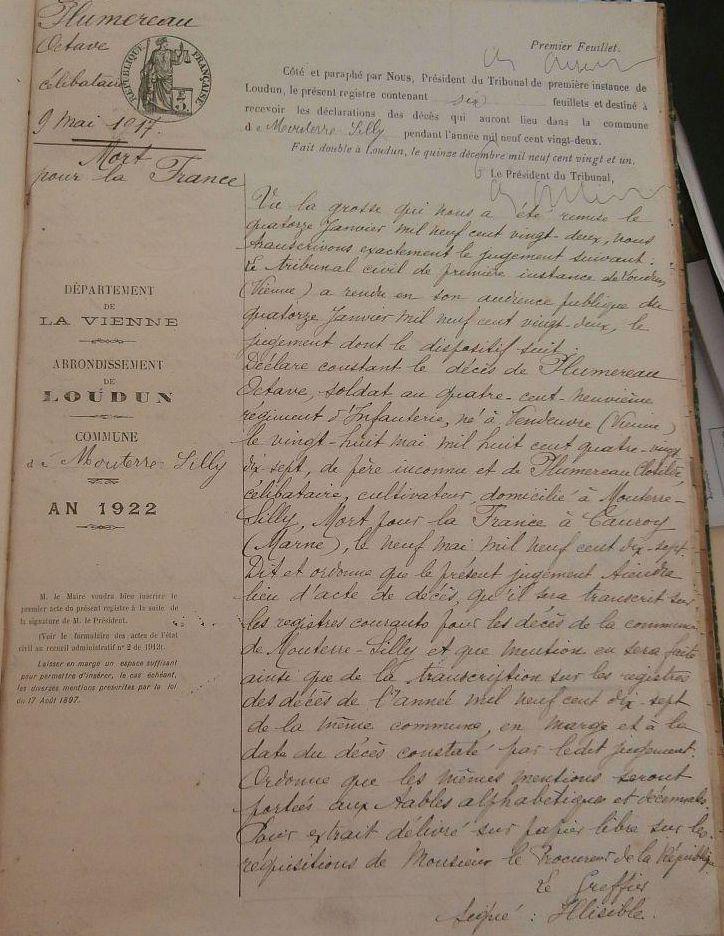 Plumereau
Octave
célibataire
9 mai 1917.
Mort
pour la France
RÉPUBLIQUE FRANÇAISE
Premier Feuillet.
Côté et paraphé par Nous, Président du Tribunal de première instance de
Loudun, le présent registre contenant six feuillets et destiné à
recevoir les déclarations des décès qui auront lieu dans la commune
de Mouterre-Silly pendant l'année mil neuf cent vingt-deux.
Fait double à Loudun, le quinze décembre mil neuf cent vingt et un.
Le Président du Tribunal,
DÉPARTEMENT
DE
LA VIENNE
ARRONDISSEMENT
DE
LOUDUN
COMMUNE
de Mouterre-Silly
AN 1922
M. le Maire voudra bien inscrire le
premier acte du présent registre à la suite de
la signature de M. le Président.
(Voir le formulaire des actes de l'état
civil au recueil administratif n° 2 de 1913).
Laisser en marge un espace suffisant
pour permettre d'insérer, le cas échéant,
les diverses mentions prescrites par la loi
du 17 Août 1897.
Vu la grosse qui nous a été remise le
quatorze Janvier mil neuf cent vingt-deux, nous
transcrivons exactement le jugement suivant :
Le tribunal civil de première instance de Loudun
(Vienne) a rendu en son audience publique du
quatorze Janvier mil neuf cent vingt-deux, le
jugement dont le dispositif suit :
Déclare constant le décès de Plumereau
Octave, soldat au quatre-cent-neuvième
régiment d'Infanterie, né à Vendeuvre (Vienne)
le vingt-huit mai mil huit cent quatre-vingt
dix-sept, de père inconnu et de Plumereau Clotilde,
célibataire, cultivateur, domicilié à Mouterre-
Silly, Mort pour la France à Cauroy
(Marne), le neuf mai mil neuf cent dix-sept.
Dit et ordonne que le présent jugement tiendra
lieu d'acte de décès, qu'il sera transcrit sur
les registres courants pour les décès de la commune
de Mouterre-Silly et que mention en sera faite
ainsi que de la transcription sur les registres
des décès de l'année mil neuf cent dix-sept
de la même commune, en marge et à la
date du décès constaté par ledit jugement.
Ordonne que les mêmes mentions seront
portées aux tables alphabétiques et décennales.
Pour extrait délivré sur papier libre sur les
réquisitions de Monsieur le Procureur de la République
Le Greffier
Signé : Illisible.